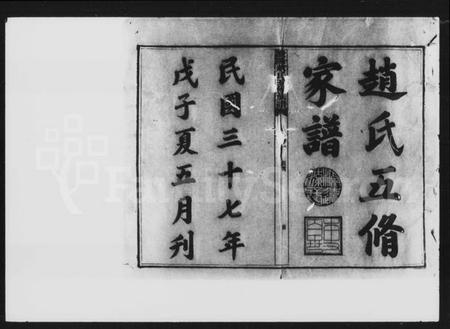 趙氏五脩
家譜
民國三十七年
戊子夏五月刋
FamilySearch